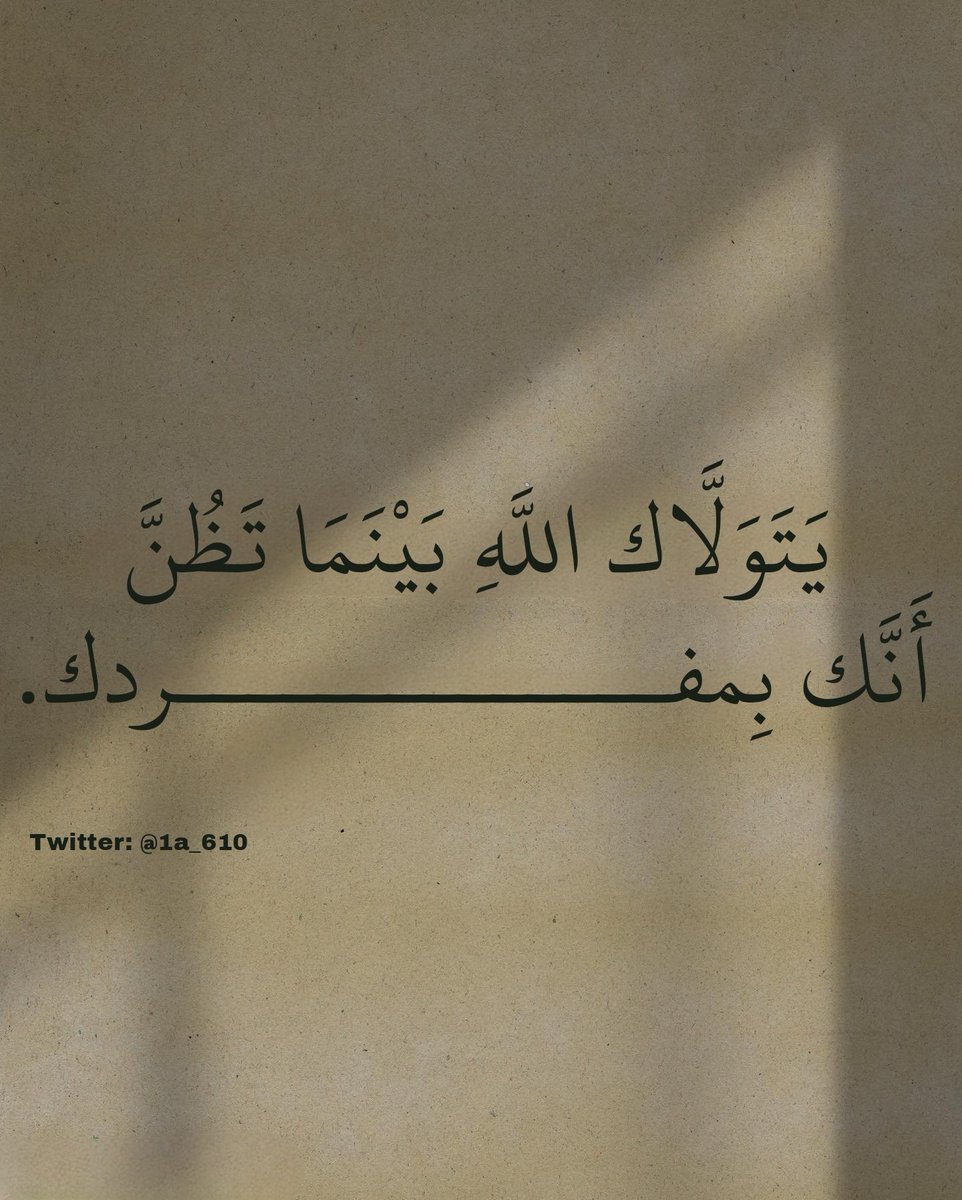 يَتَوَلَّاك اللَّهِ بَيْنَمَا تَظُنَّ
أَنَّك بِمفــــــــــــــــــــــــردك.
Twitter: @1a_610